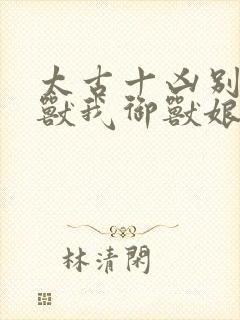 太古十凶别
獸我御獸娘
林清閑